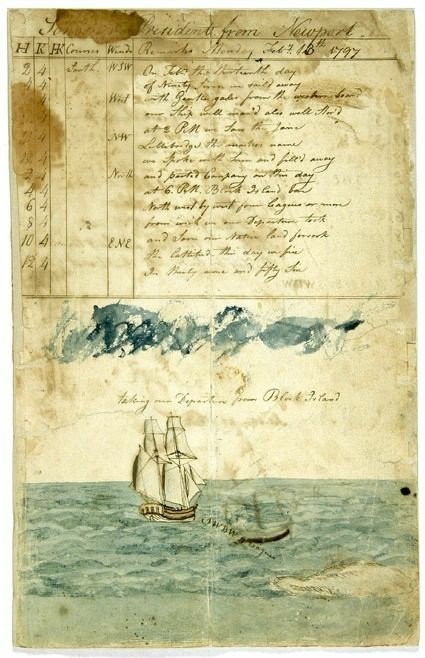 President from Newport
H K HK Courses Winds Remarks Monday Feb 16th 1797
2 4 South WSW On Feb the sixteenth day
4 4 of Ninety Seven we sail'd away
West with Gentle gales from the western board
our Ship well man'd also well Stor'd
at 2 P.M we saw the Jane
4 NW Lillibridge the masters name
12 4 we Spoke with him and fill'd away
2 4 North and parted Company on this day
4 4 at 6 P.M. Block Island bore
6 4 North west by west four Leagues or more
8 4 from wich we our Departure took
10 4 ENE and Soon our Native land forsook
12 4 the Lattitude this day in five
In thirty nine and fifty
taking our Departure from Block Island
NWBW 4 Leagues